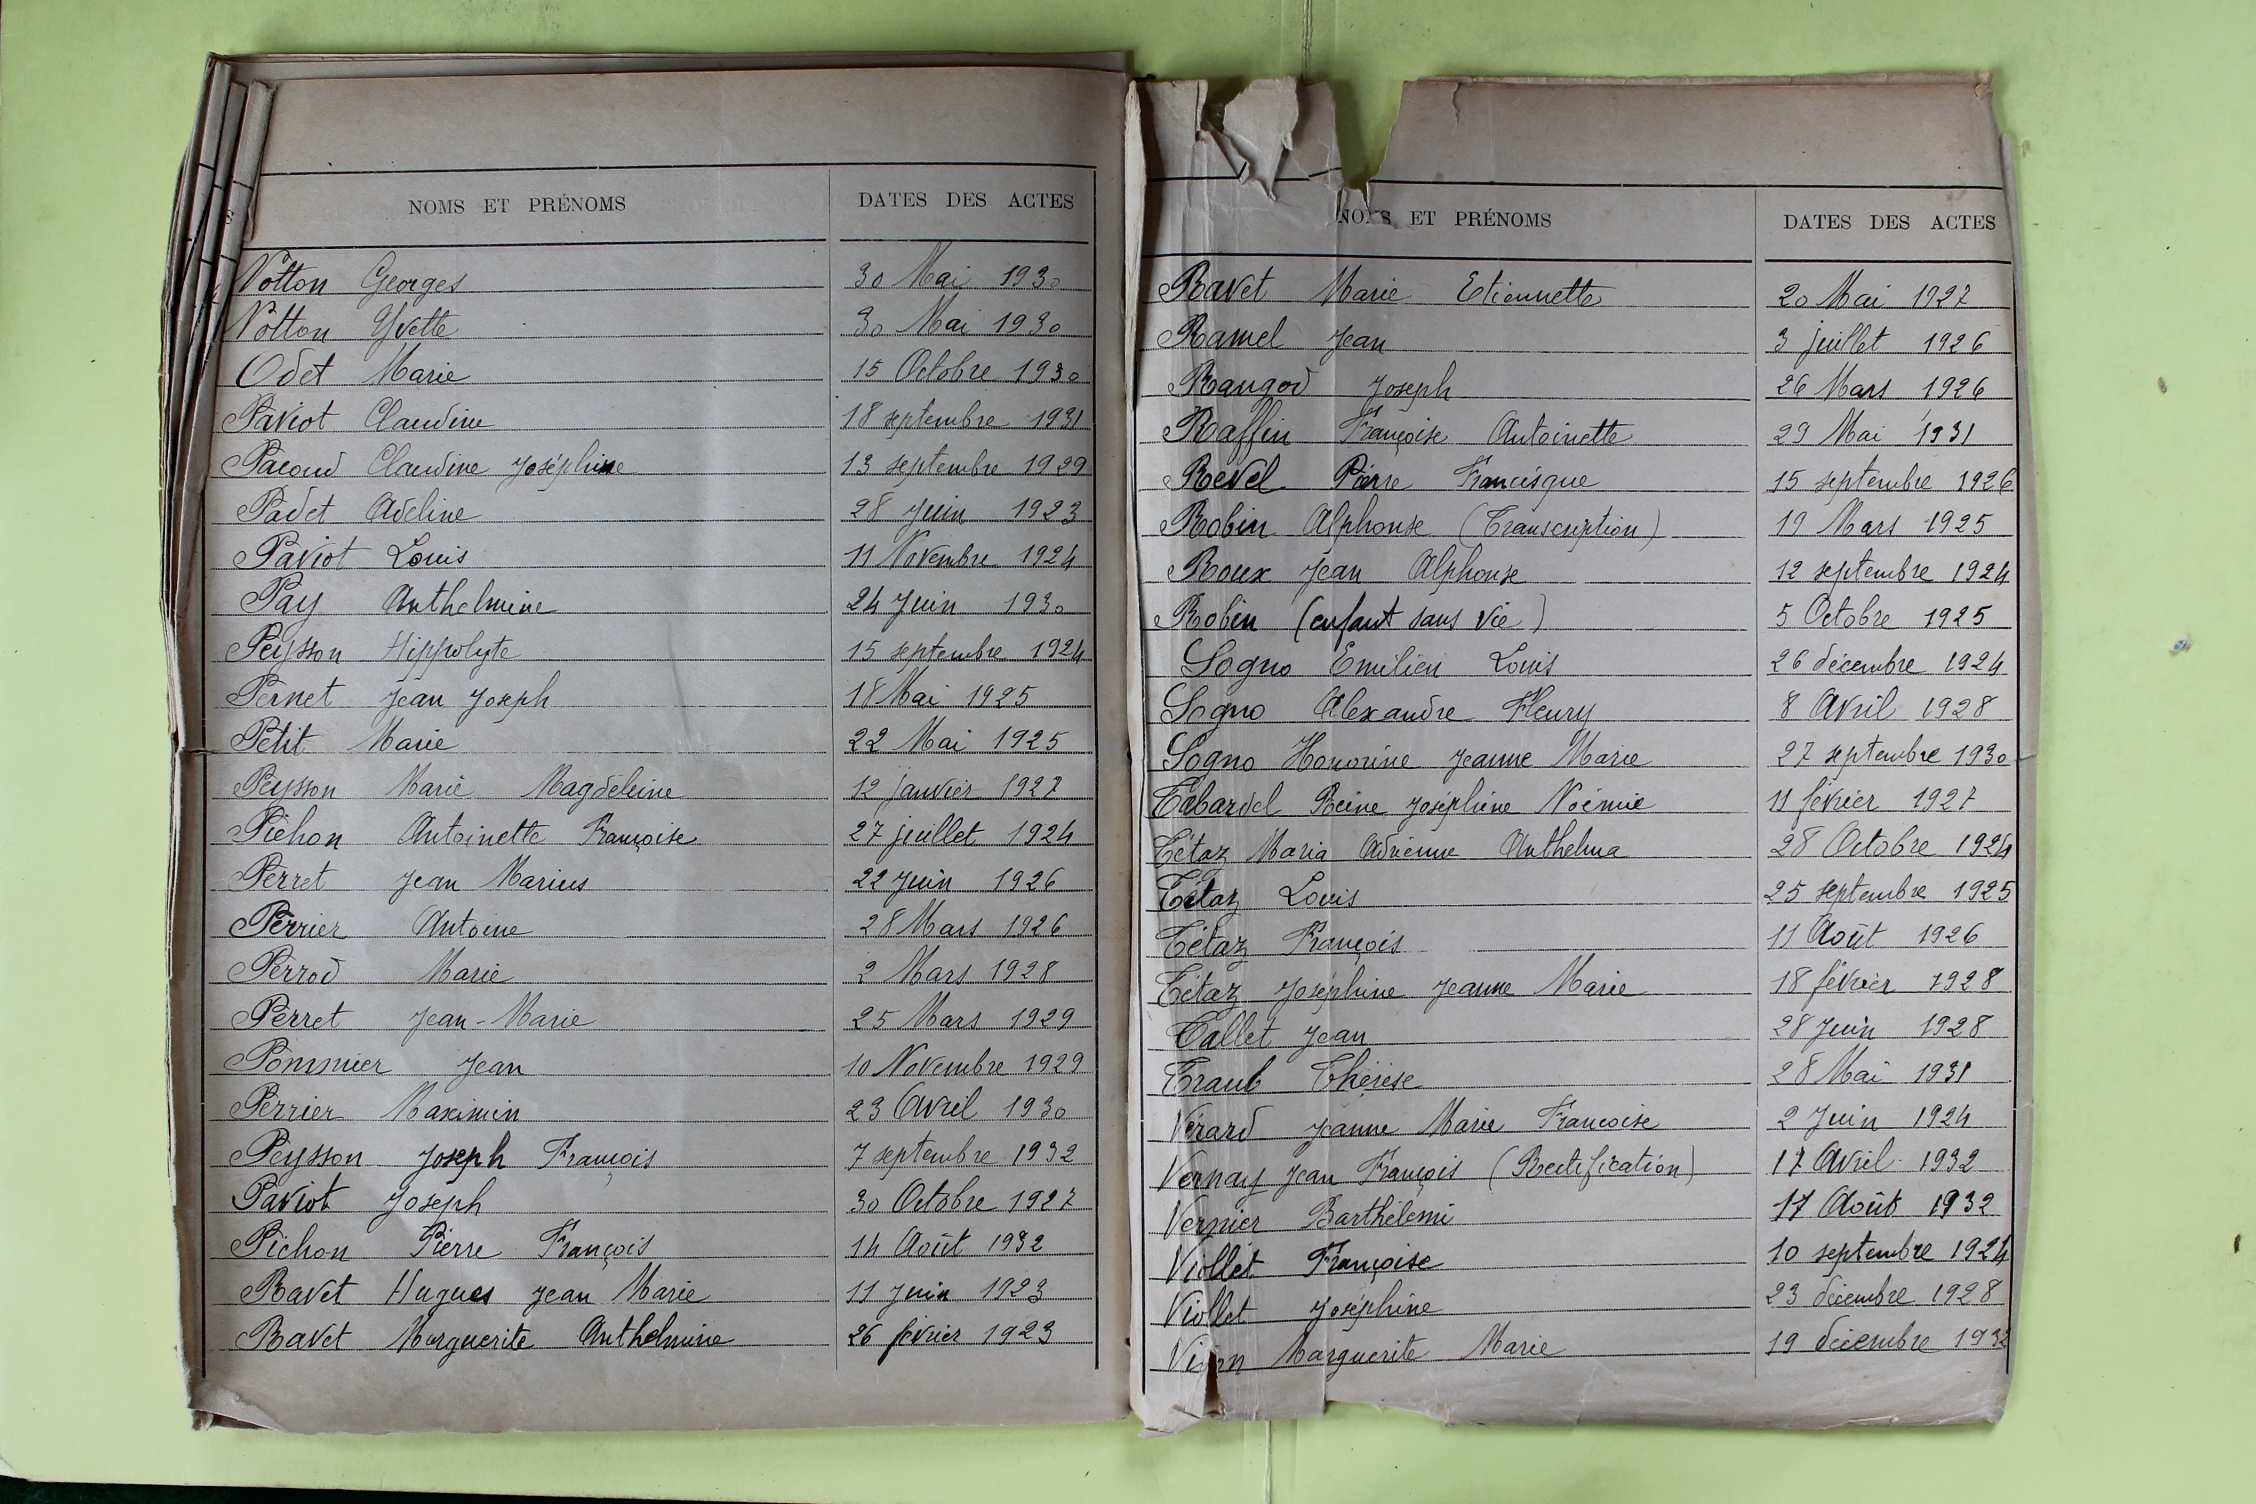 NOMS ET PRÉNOMS DATES DES ACTES
Notton Georges 30 Mai 1930
Notton Yvette 30 Mai 1930
Odet Marie 15 Octobre 1930
Paviot Claudine 18 septembre 1931
Pacoud Claudine Joséphine 13 septembre 1929
Padet Adeline 28 Juin 1923
Paviot Louis 11 Novembre 1924
Pay Anthelmine 24 Juin 1930
Peysson Hippolyte 15 septembre 1924
Pernet Jean Joseph 18 Mai 1925
Petit Marie 22 Mai 1925
Peysson Marie Magdeleine 12 janvier 1927
Pichon Antoinette Françoise 27 juillet 1924
Perret Jean Marius 22 Juin 1926
Perrier Antoine 28 Mars 1926
Perrod Marie 2 Mars 1928
Perret Jean-Marie 25 Mars 1929
Pommier Jean 10 Novembre 1929
Perrier Maximin 23 Avril 1930
Peysson Joseph François 7 septembre 1932
Paviot Joseph 30 Octobre 1927
Pichon Pierre François 14 Août 1932
Ravet Hugues Jean Marie 11 Juin 1923
Ravet Marguerite Anthelmine 26 février 1923
NOMS ET PRÉNOMS DATES DES ACTES
Ravet Marie Etiennette 20 Mai 1927
Ramel Jean 3 juillet 1926
Rangod Joseph 26 Mars 1926
Raffin Françoise Antoinette 29 Mai 1931
Revel Pierre Francisque 15 septembre 1926
Robin Alphonse (Transcription) 19 Mars 1925
Roux Jean Alphonse 12 septembre 1924
Robin (enfant sans vie) 5 Octobre 1925
Sogno Emilien Louis 26 décembre 1924
Sogno Alexandre Fleury 8 Avril 1928
Sogno Honorine Jeanne Marie 27 septembre 1930
Tabardel Reine Joséphine Noémie 11 février 1927
Tétaz Maria Adrienne Anthelma 28 Octobre 1924
Tétaz Louis 25 septembre 1925
Tétaz François 11 Août 1926
Tétaz Joséphine Jeanne Marie 18 février 1928
Tallet Jean 28 Juin 1928
Traub Thérèse 28 Mai 1931
Vérard Jeanne Marie Francoise 2 Juin 1924
Vernay Jean François (Rectification) 17 Avril 1932
Vernier Barthélemi 17 Août 1932
Viollet Françoise 10 septembre 1924
Viollet Joséphine 23 décembre 1928
Marguerite Marie 19 décembre 1932